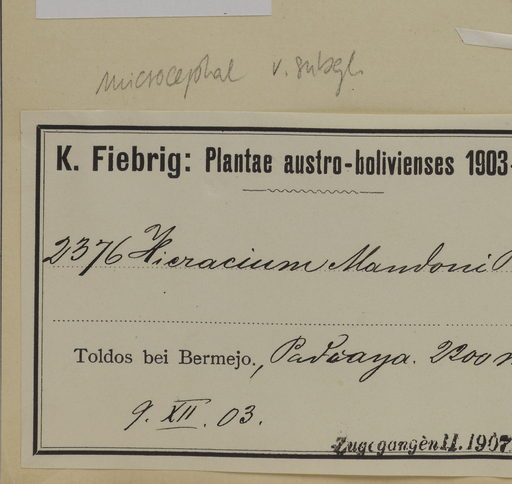 microcephal v. subgl.
K. Fiebrig: Plantae austro-bolivienses 1903-
2376 Hieracium Mandoni
Toldos bei Bermejo., Padcaya. 2200 m
9. XII. 03.
Zugegangen 11.1907